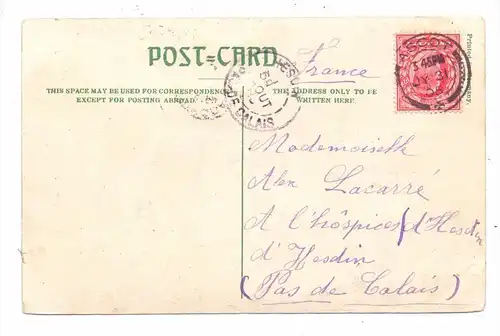 POST-CARD
THIS SPACE MAY BE USED FOR CORRESPONDENCE
EXCEPT FOR POSTING ABROAD.
THE ADDRESS ONLY TO BE
WRITTEN HERE.
France
PAS DE CALAIS
ASCOT
Printed
Mademoiselle
Alex Lacarré
A l'hôspices d'Hesdin
d'Hesdin
(Pas de Calais)